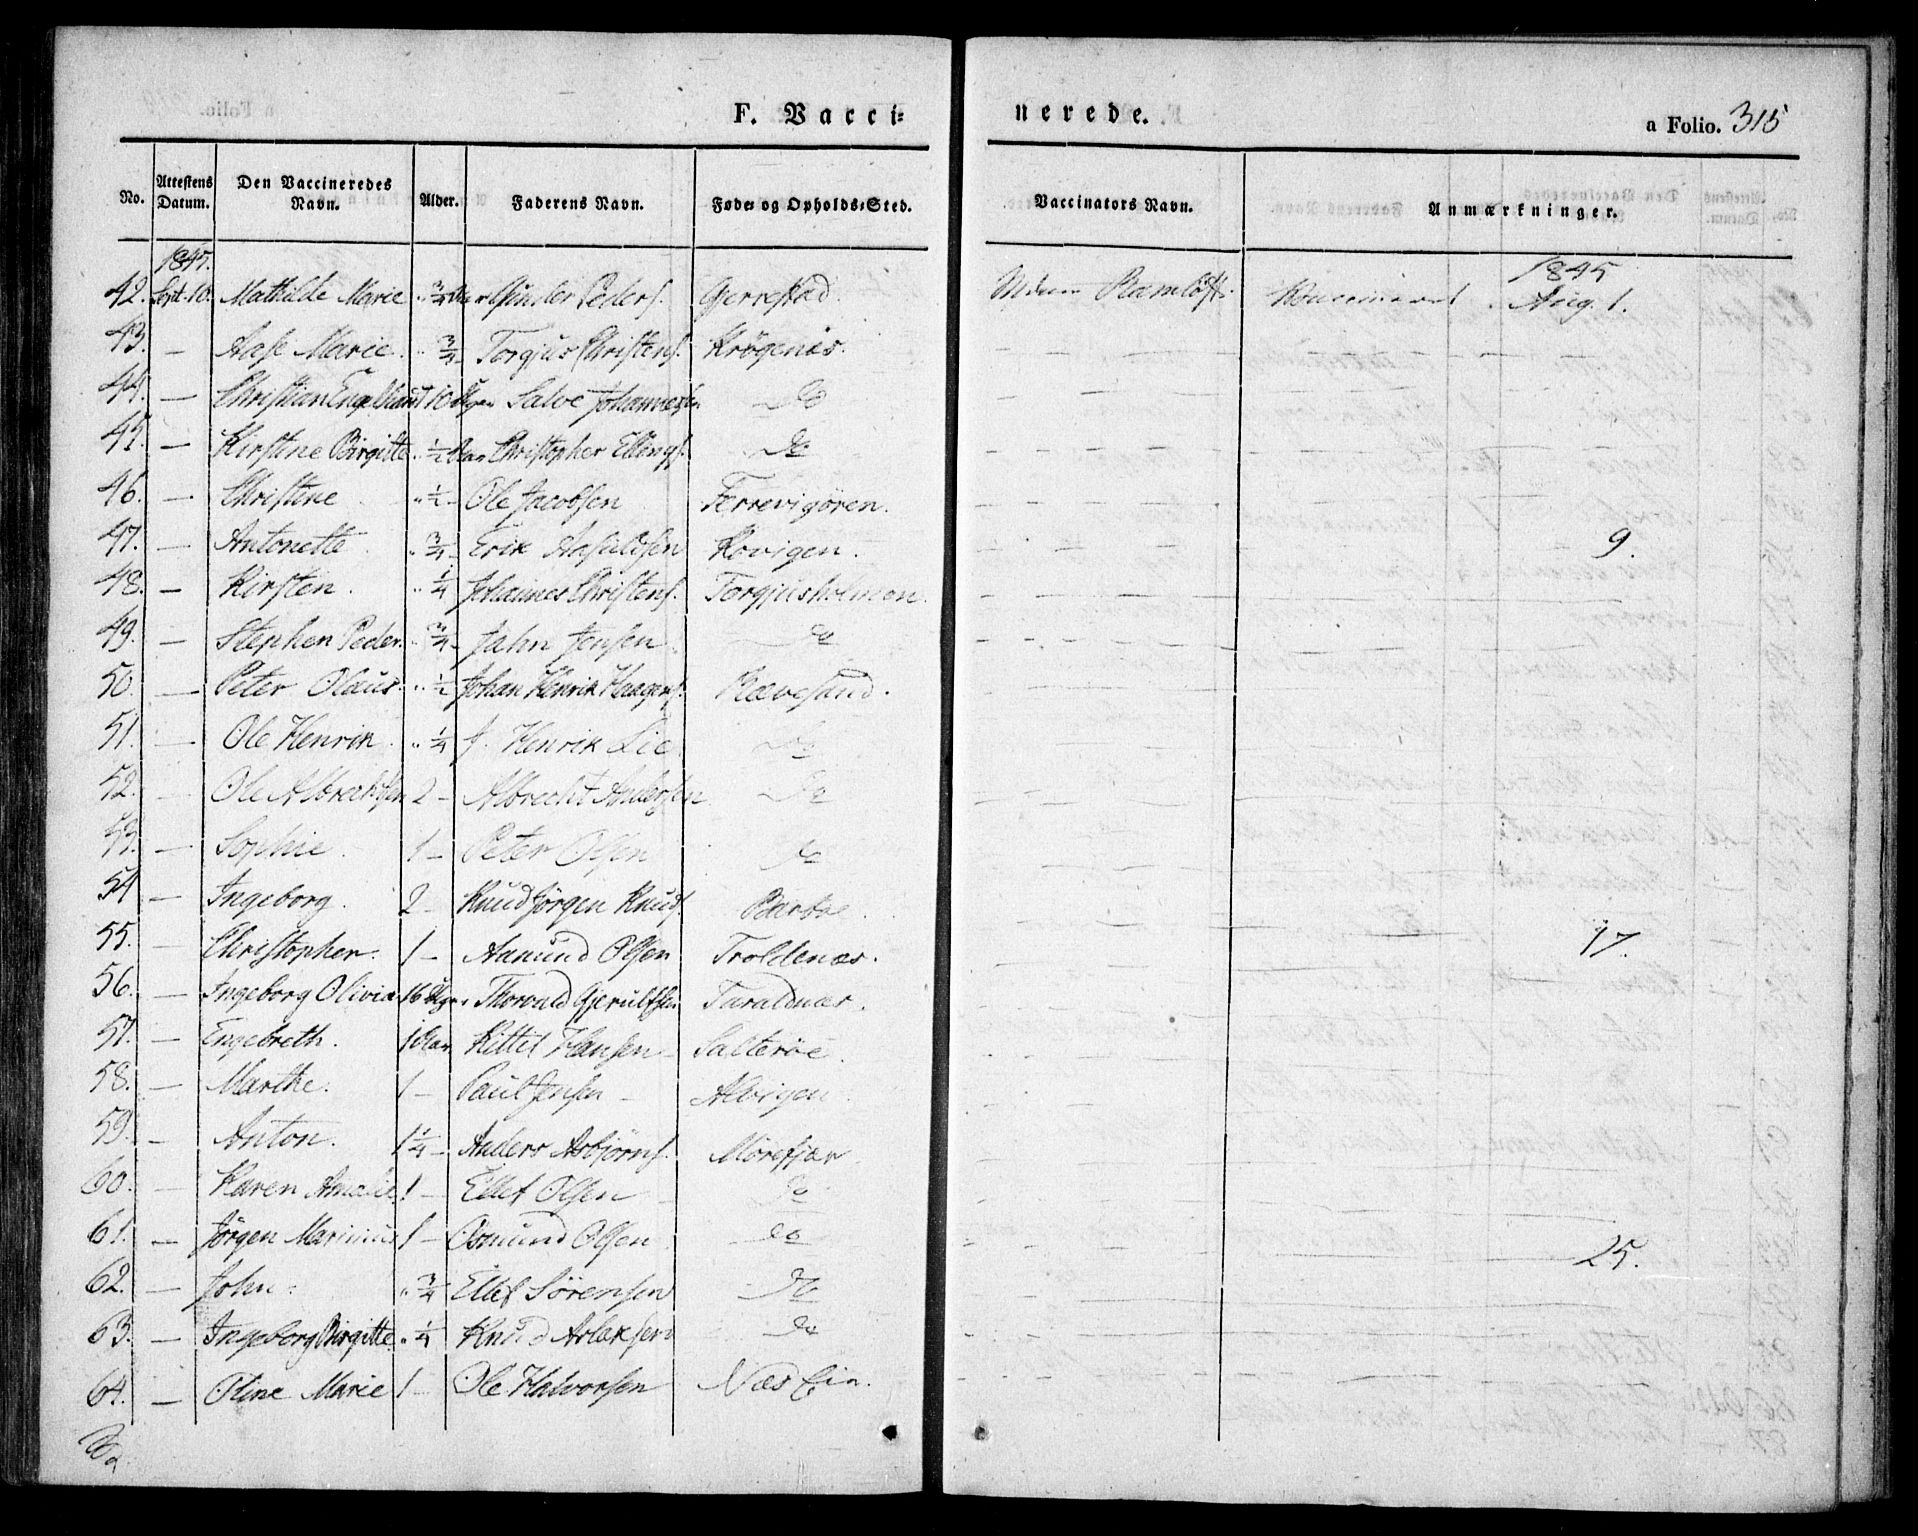 F. Vacci= nerede.
a Folio. 315
No. Attestens Datum. Den Vaccineredes Navn. Alder. Faderens Navn. Føde= og Opholds=Sted. Vaccinators Navn. Anmærkninger.
1845. 1845
42. Sept. 10. Mathilde Marie " 3/4 Aar Gunder Peders. Gerrestad. Vaccineret Aug. 1.
43. — Aase Marie. " 3/4 Torgjus Christens. Krögenæs. — — —
44. — Christian Engelhart 10 Uger Salve Johannesen do — — —
45. — Kirstine Birgitte " 1/2 Aar Christopher Ellings. do — — —
46. — Christine " 1/2 – Ole Jacobsen Færrevigören. — — —
47. — Antonette " 3/4 – Erik Aasulfsen Kovigen. — — — 9.
48. — Kirsten. " 1/4 Johannes Christens. Torgjusholmen. — — —
49. — Stephen Peder. " 3/4 – Jahn Jensen do — — —
50. — Peter Olaus. " 1/2 Johan Henrik Haagens. Rævesand. — — —
51. — Ole Henrik. " 1/4 J. Henrik Lie do — — —
52. — Ole Albrechtsen 2 – Albrecht Andersen do — — —
53. — Sophie. 1 – Peter Olsen do — — —
54 — Ingeborg. 2 – Knud Jörgen Knuds. Barboe. — — —
55. — Christopher. 1 – Aamund Olsen Troldenæs. — — — 17.
56. — Ingeborg Olivia 16 Uger Thorvald Gjerulfsen Taraldnæs. — — —
57. — Engebreth. 1 Aar Kittel Hansen – Salteröe. — — —
58. — Marthe. 1 – Paul Jensen – Alvigen. — — —
59. — Anton. 1 1/4 – Anders Asbjörns. Mörefjær. — — —
60. — Karen Amalie 1 – Ellef Olsen – do — — —
61. — Jörgen Marinius 1 – Osmund Olsen do — — — 25.
62. — John. " 3/4 Ellef Sörensen do — — —
63. — Ingeborg Birgitte " 1/4 Knud Aslaksen do — — —
64. — Oline Marie 1 – Ole Halvorsen Næs — — —